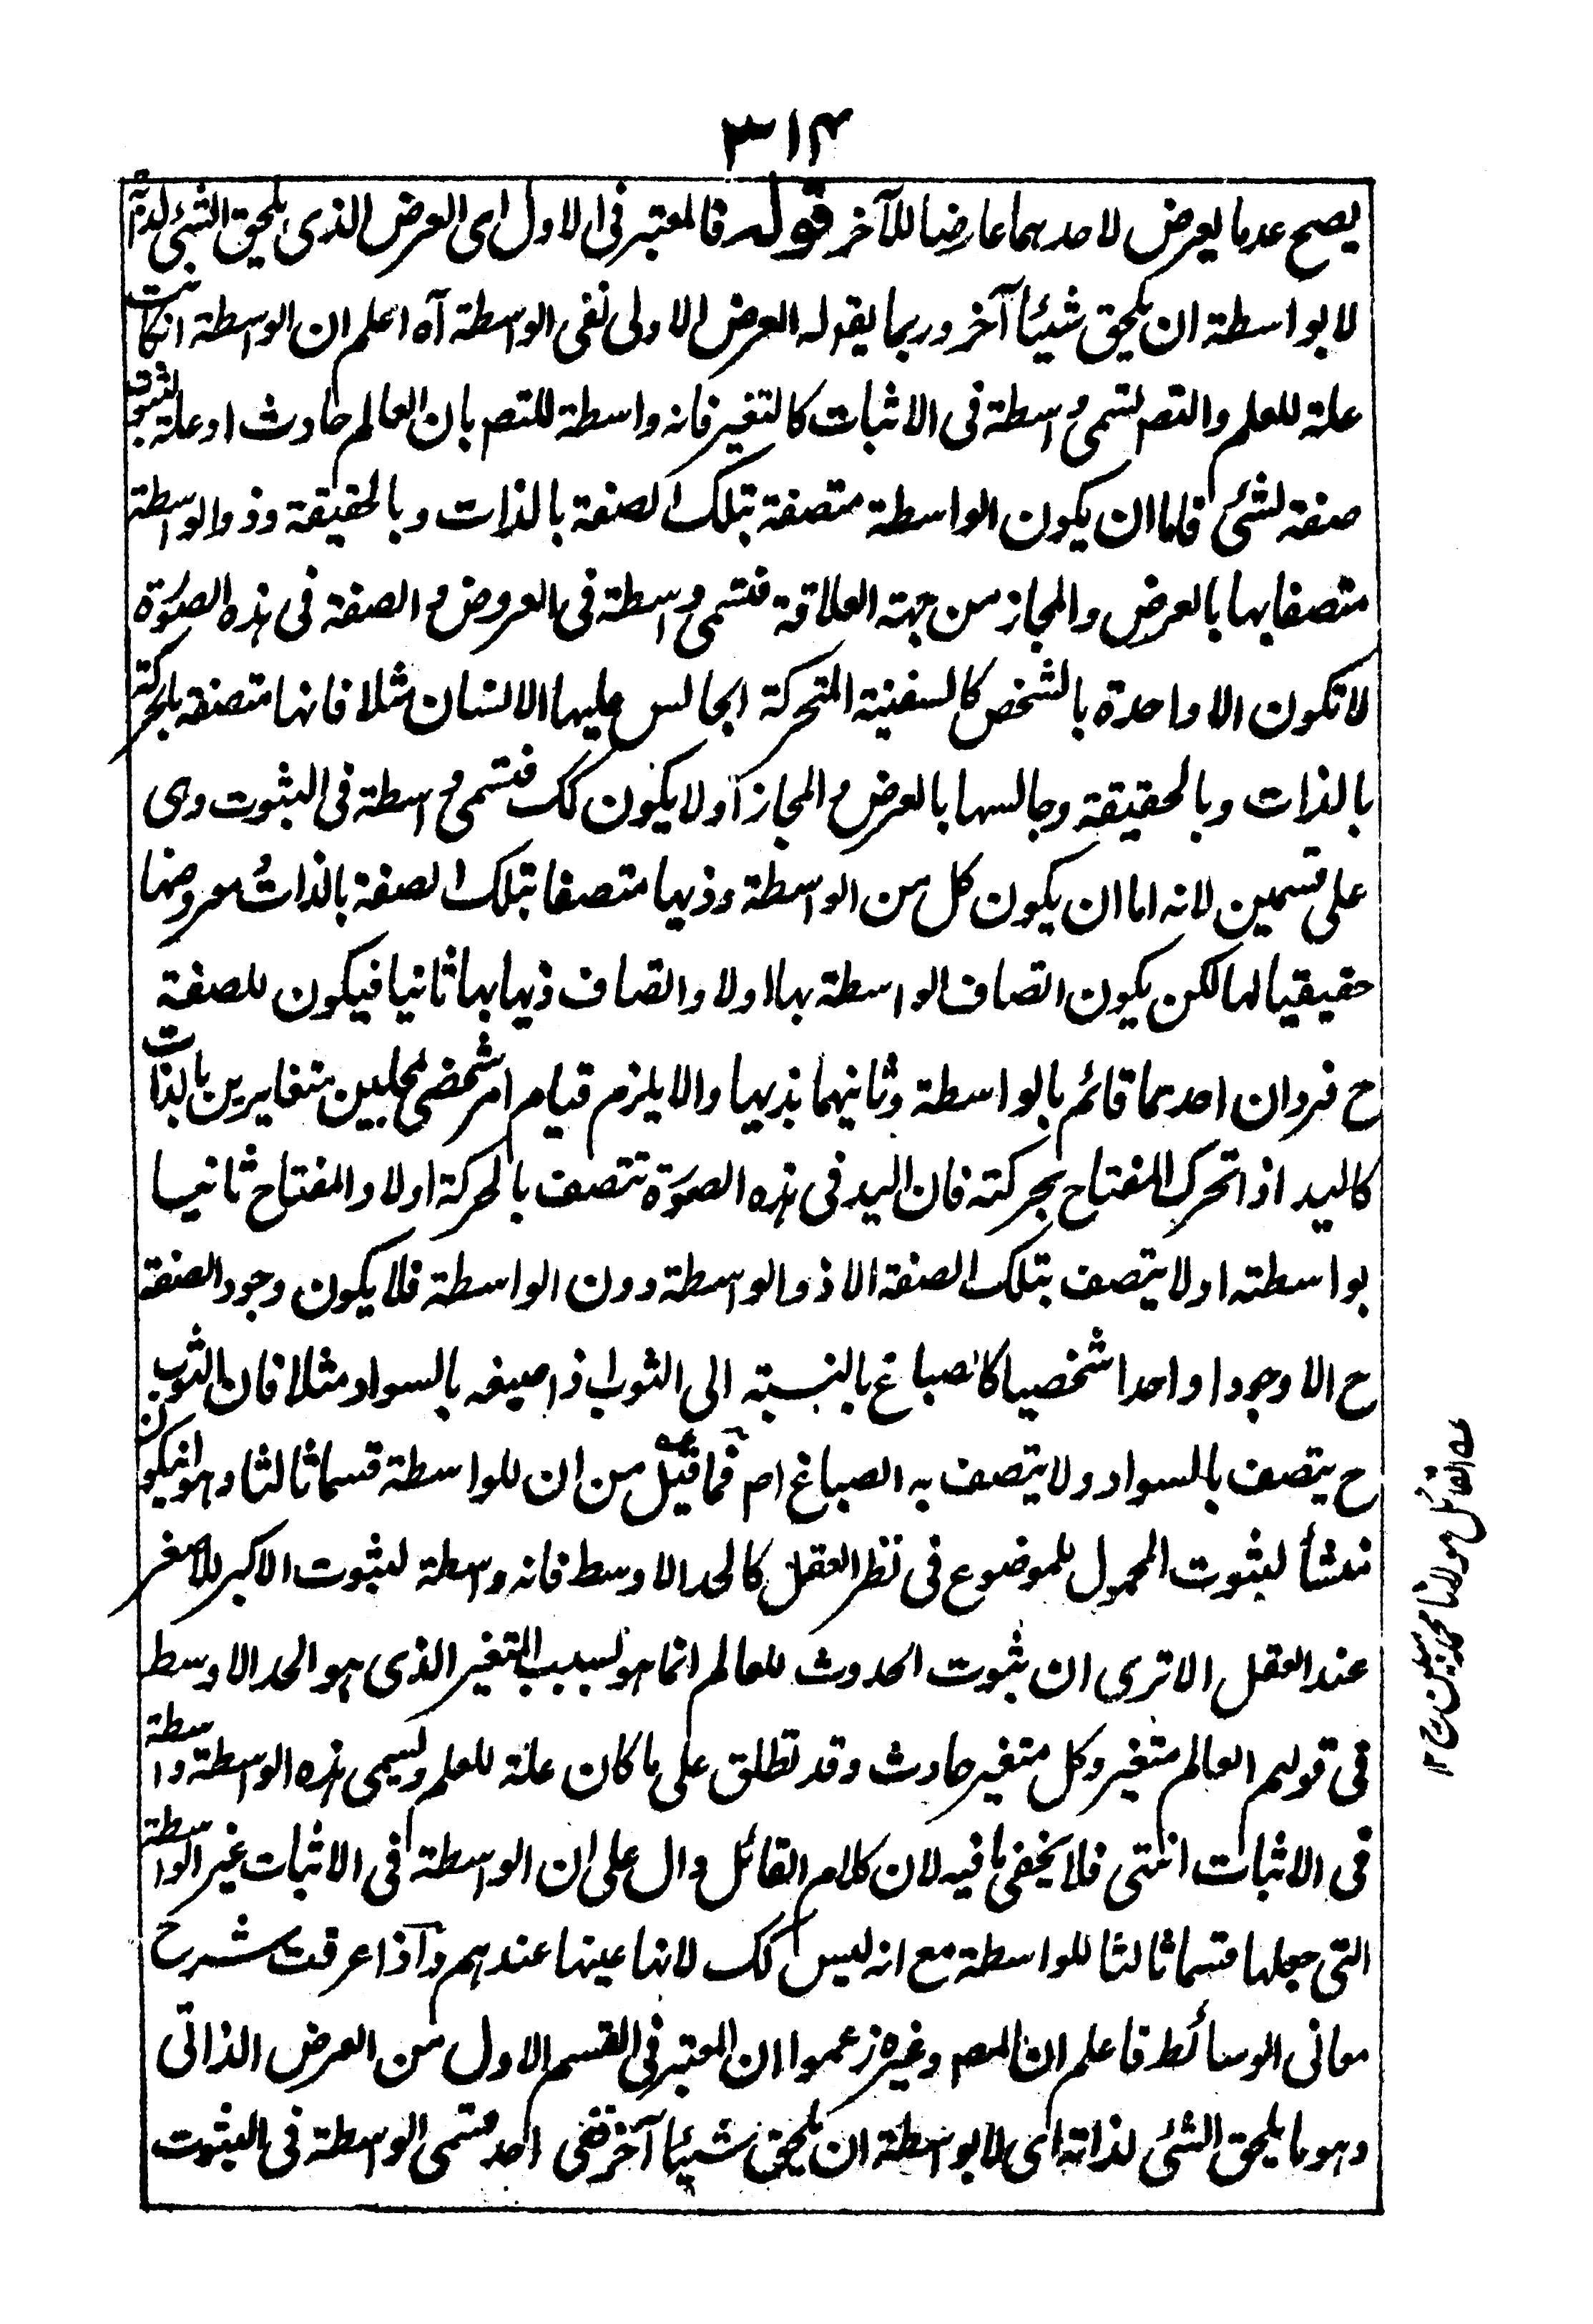 ٣١٤
يصح عدما يعرض لاحدهما عارضا للآخر قوله فالمعتبر في الاول اى العرض الذى يلحق الشئ لذاته
لا بواسطة ان يلحق شيئا آخر وربما يقوله العرض الاولى نفى الواسطة آه اعلم ان الواسطة ان كانت
علة للعلم والتصـ تسمى واسطة فى الاثبات كالتغير فانه واسطة للتصـ بان العالم حادث او علة لثبوت
صفة لشئ فاما ان يكون الواسطة متصفة بتلك الصفة بالذات وبالحقيقة وذو الواسطة
متصفا بها بالعرض والمجاز من جهة العلاقة فتسمى واسطة فى العروض و الصفة فى هذه الصورة
لا تكون الا واحدة بالشخص كالسفينة المتحركة الجالس عليها الانسان مثلا فانها متصفة بالحركة
بالذات وبالحقيقة وجالسها بالعرض و المجاز او لا يكون كك فتسمى واسطة فى الثبوت وهى
على قسمين لانه اما ان يكون كل من الواسطة وذيها متصفا بتلك الصفة بالذات و معروضها
حقيقيا لها لكن يكون اتصاف الواسطة بها اولا واتصاف ذيها بها ثانيا فيكون للصفة
ح فردان احدهما قائم بالواسطة وثانيهما بذيها والا يلزم قيام امر شخصى بمحلين متغايرين بالذات
كاليد اذا تحرك المفتاح بحركته فان اليد فى هذه الصورة تتصف بالحركة اولا والمفتاح ثانيا
بواسطته او لا يتصف بتلك الصفة الا ذو الواسطة دون الواسطة فلا يكون وجود الصفة
ح الا وجودا واحدا شخصيا كالصباغ بالنسبة الى الثوب اذ اصبغه بالسواد مثلا فان الثوب
ح يتصف بالسواد ولا يتصف به الصباغ اصـ فما قيل من ان للواسطة قسما ثالثا وهو ان يكون
منشأ لثبوت المحمول للموضوع فى نظر العقل كالحد الاوسط فانه واسطة لثبوت الاكبر للاصغر
عند العقل الا ترى ان ثبوت الحدوث للعالم انما هو بسبب التغير الذى هو الحد الاوسط
فى قولهم العالم متغير وكل متغير حادث وقد تطلق على ما كان علة للعلم ويسمى هذه الواسطة واسطة
فى الاثبات انتهى فلا يخفى ما فيه لان كلام القائل دال على ان الواسطة فى الاثبات غير الواسطة
التى جعلها قسما ثالثا للواسطة مع انه ليس كك لانها عينها عندهم واذا عرفت شرح
معانى الوسائط فاعلم ان المصـ وغيره زعموا ان المعتبر فى القسم الاول من العرض الذاتى
وهو ما يلحق الشئ لذاته اى لا بواسطة ان يلحق شيئا آخر نفى احد قسمى الواسطة فى الثبوت
القائل مولانا محمد مبين ١٢